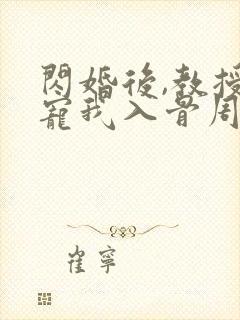 閃婚後,教授
寵我入骨周
崔寧